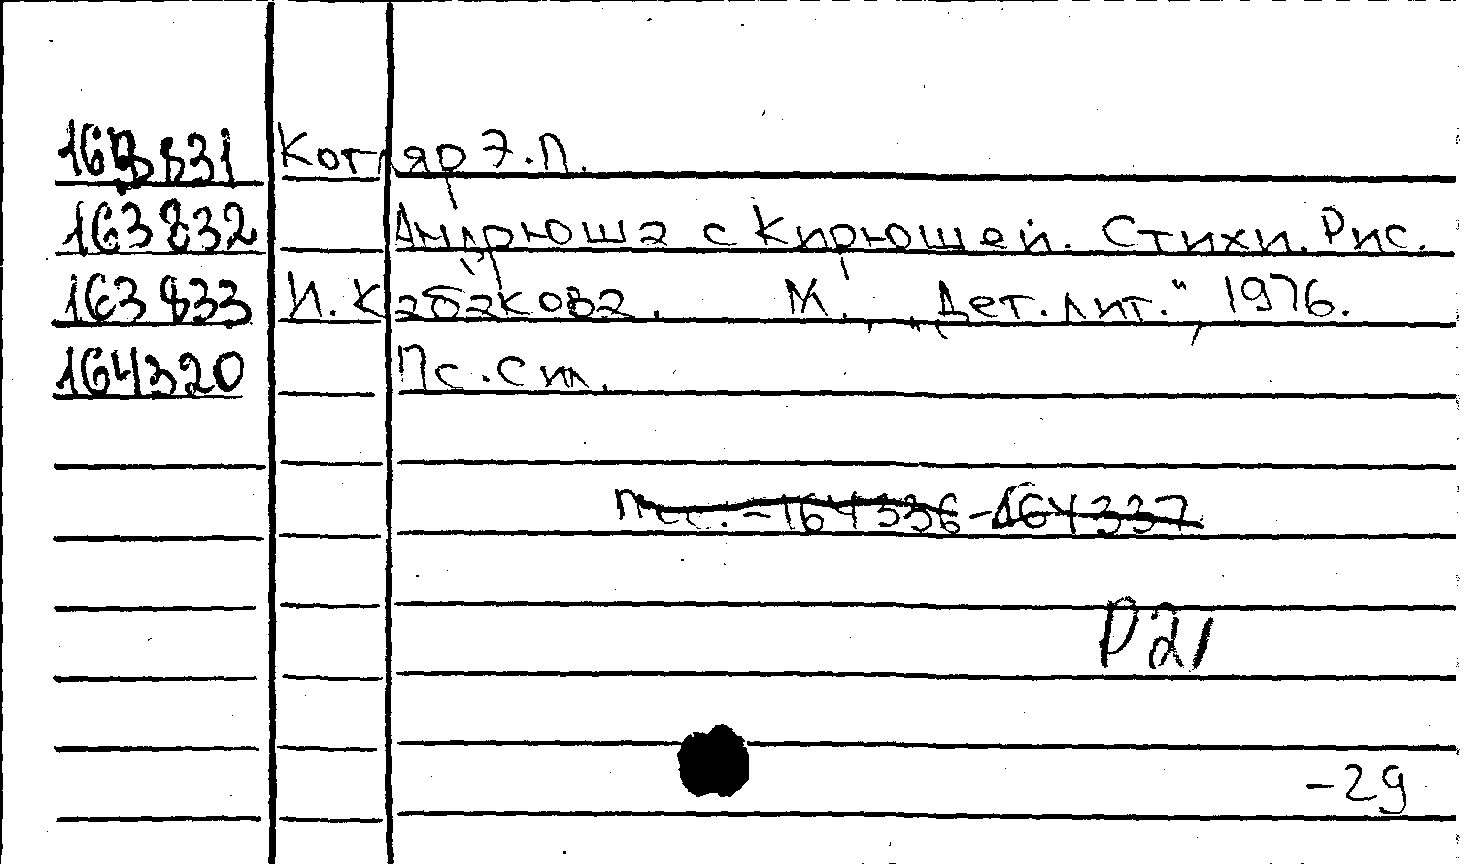 163831 Котляр Э.П.
163832 Андрюша с Кирюшей. Стихи. Рис.
163833 И. Кабакова. М., „Дет. лит.“, 1976.
164320 Пс. Сил.
164336 - 164337
Р2
-29